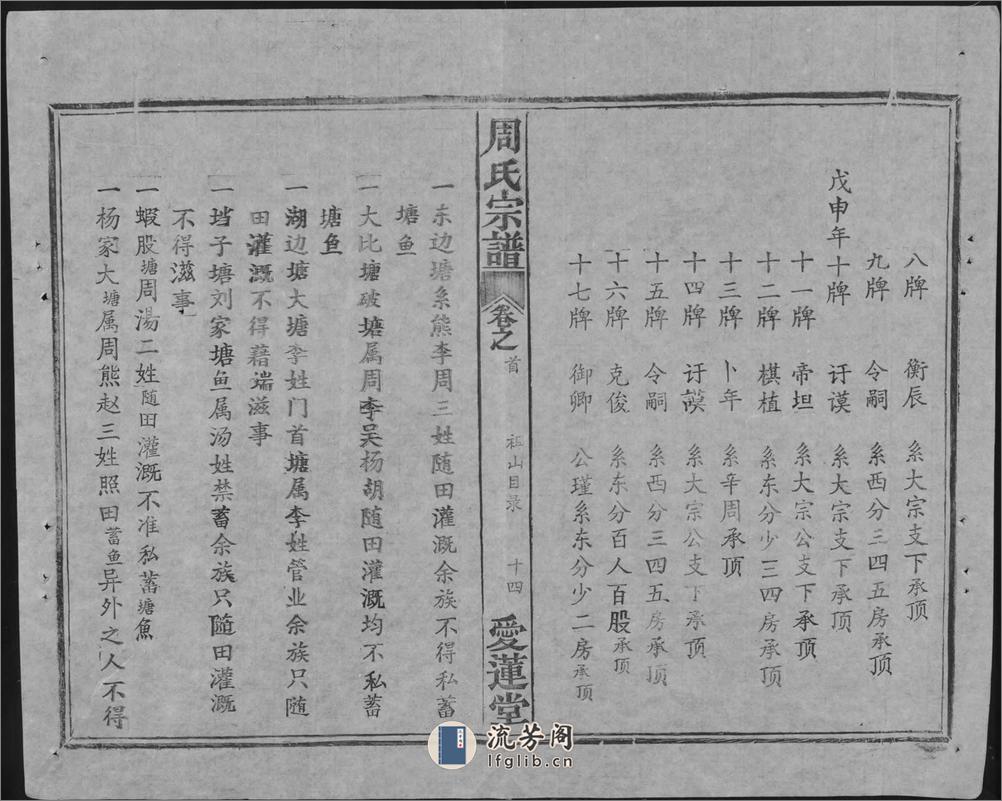 戊申年
八牌 衡辰 系大宗支下承顶
九牌 令嗣 系西分三四五房承顶
十牌 訏谟 系大宗支下承顶
十一牌 帝坦 系大宗公支下承顶
十二牌 棋植 系东分少三四房承顶
十三牌 卜年 系辛周承顶
十四牌 訏謨 系大宗公支下承顶
十五牌 令嗣 系西分三四五房承顶
十六牌 克俊 系东分百人百股承顶
十七牌 御卿 公瑾系东分少二房承顶
周氏宗譜 卷之首 祖山目录 十四 愛蓮堂
一东边塘系熊李周三姓随田灌溉余族不得私蓄
塘鱼
一大比塘破塘属周李吴杨胡随田灌溉均不私蓄
塘鱼
一湖边塘大塘李姓门首塘属李姓管业余族只随
田灌溉不得藉端滋事
一垱子塘刘家塘鱼属汤姓禁蓄余族只随田灌溉
不得滋事
一蝦股塘周湯二姓随田灌溉不准私蓄塘魚
一杨家大塘属周熊赵三姓照田蓄鱼异外之人不得
流芳阁
lfglib.cn